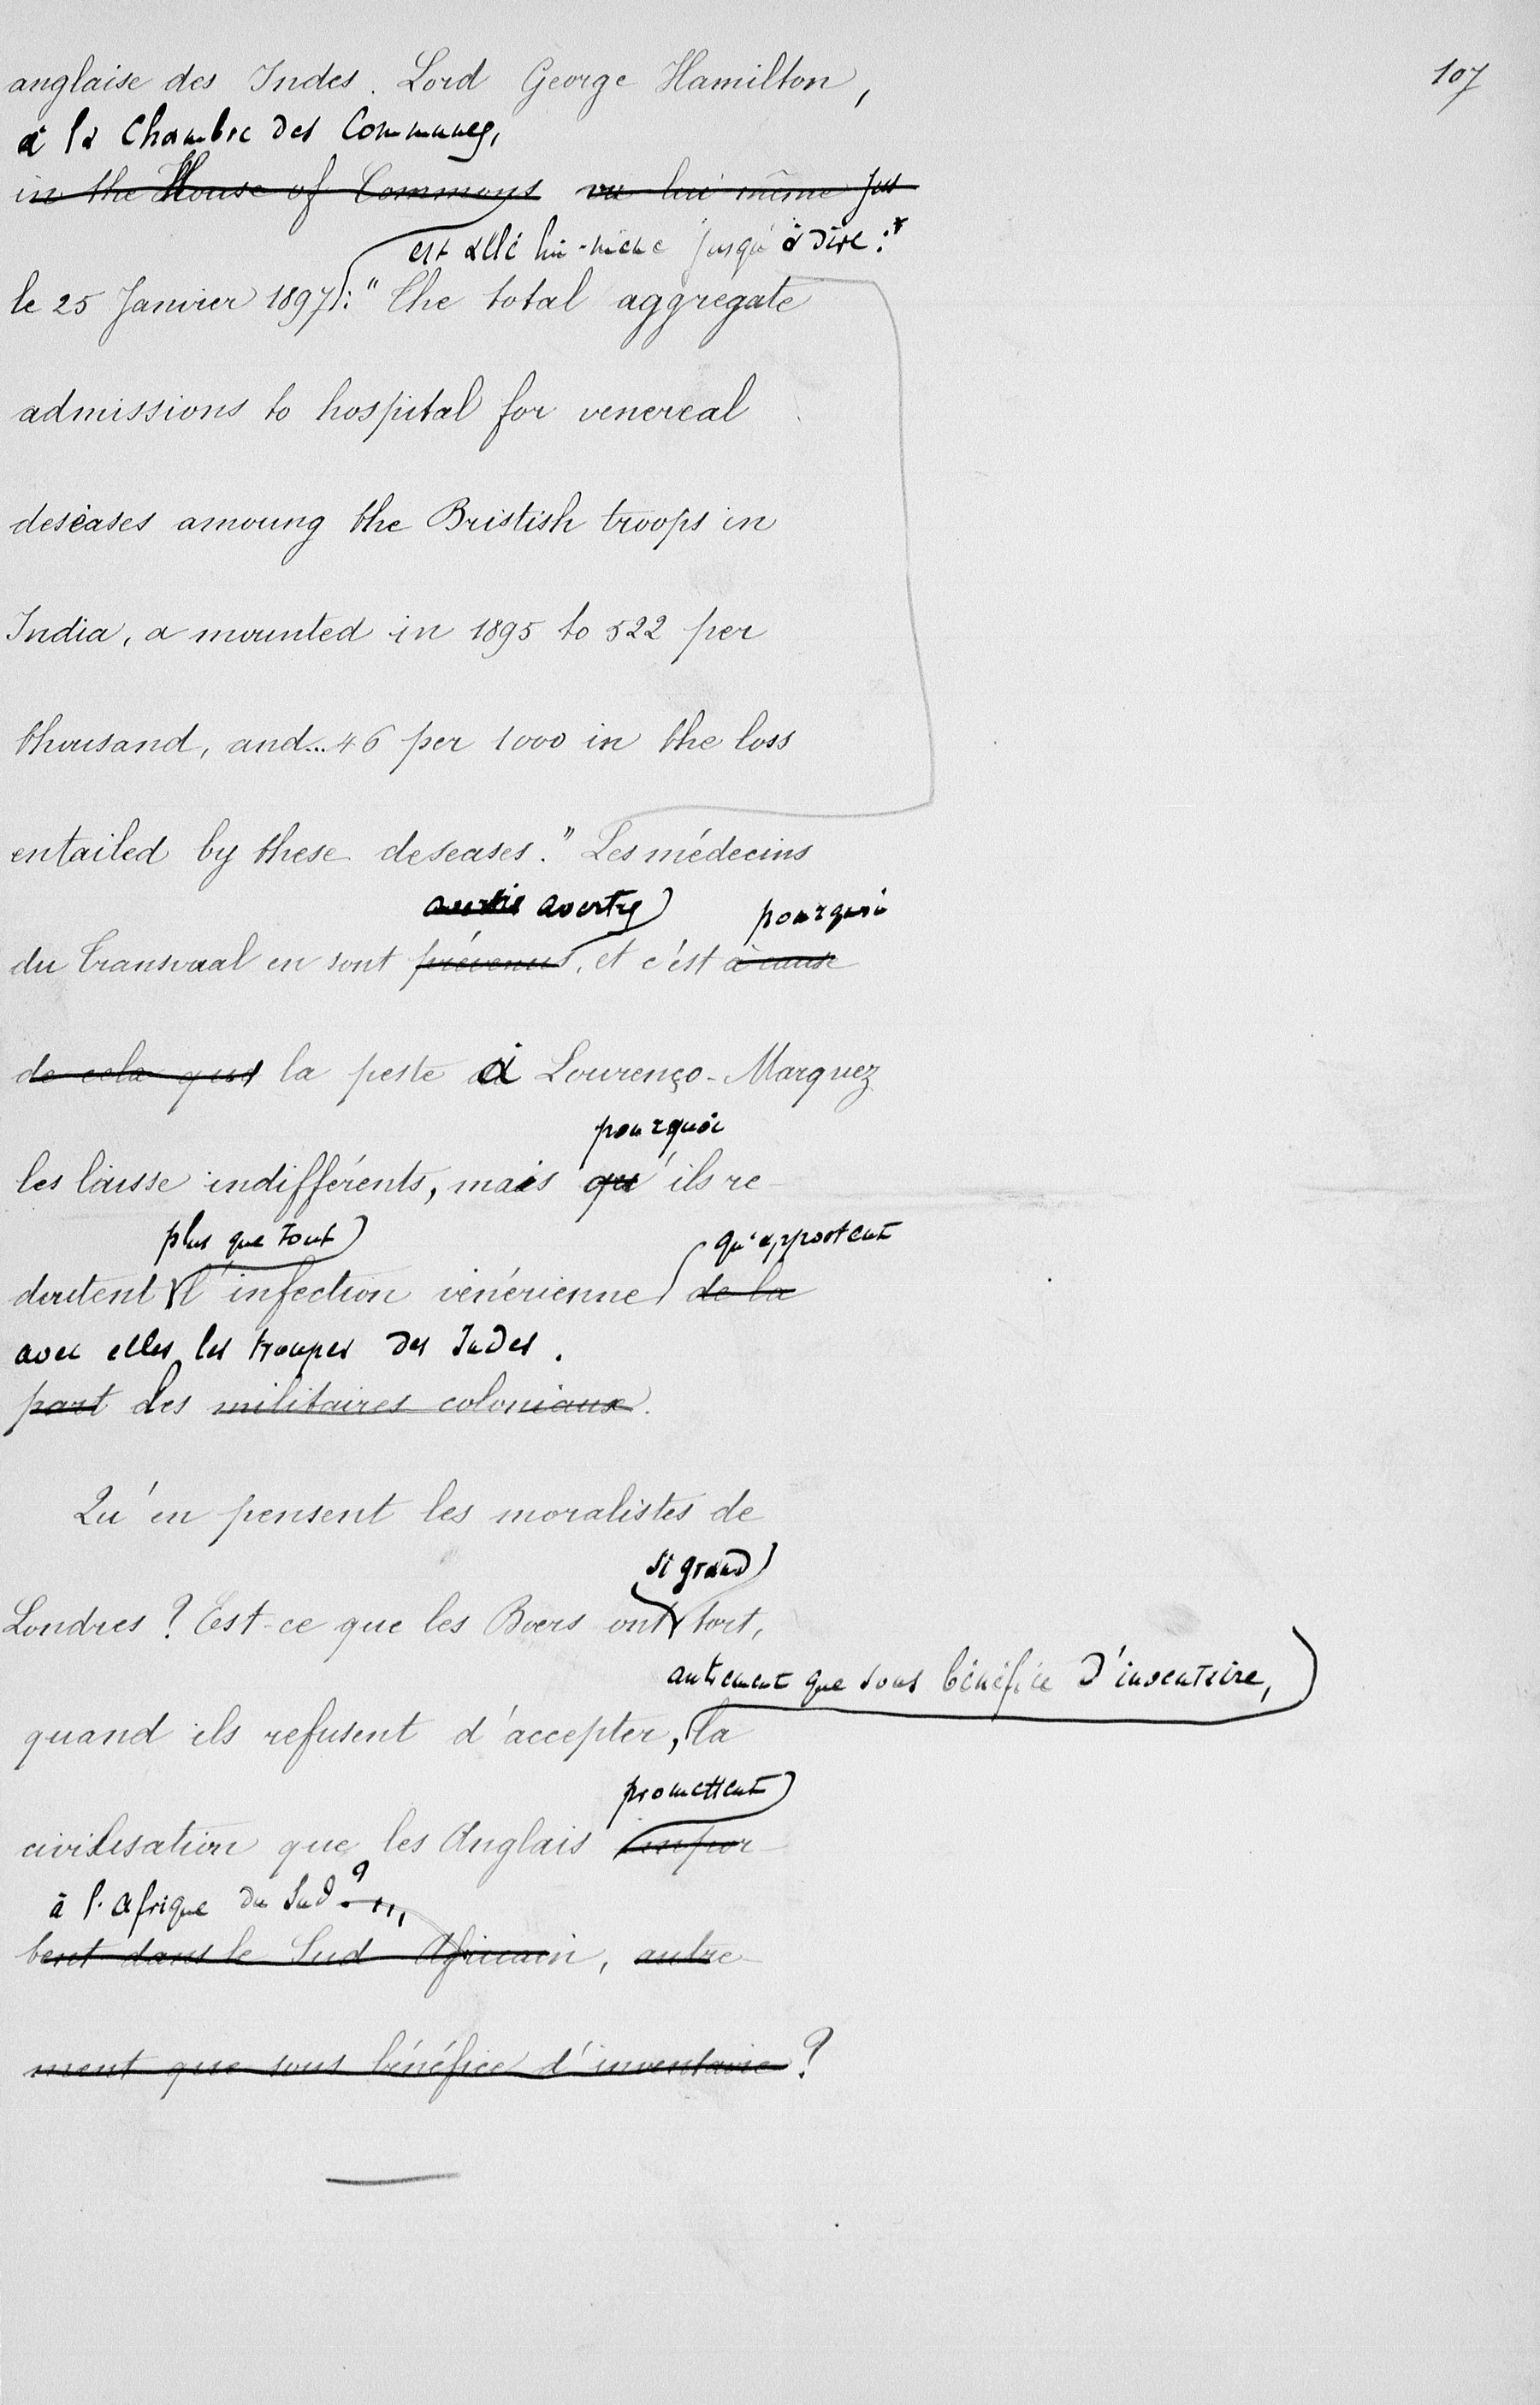 107
anglaise des Indes. Lord George Hamilton,
à la Chambre des Communes,
in the House of Commons va lui même jus
est allé lui-même jusqu'à dire :*
le 25 Janvier 1897 : "The total aggregate
admissions to hospital for venereal
deseases amoung the Bristish troops in
India, a mounted in 1895 to 522 per
thousand, and... 46 per 1000 in the loss
entailed by these deseases." Les médecins
avertis pourquoi
du Transvaal en sont prévenus, et c'est à cause
de cela que la peste à Lourenço-Marquez
pourquoi
les laisse indifférents, mais qu'ils re-
plus que tout qu'apportent
doutent l'infection vénérienne de la
avec elles les troupes des Indes.
part des militaires coloniaux.
Qu'en pensent les moralistes de
si grand
Londres ? Est-ce que les Boers ont tort,
autrement que sous bénéfice d'inventaire,
quand ils refusent d'accepter, la
promettent
civilisation que les Anglais impor-
à l'Afrique du Sud ?
tent dans le Sud Africain, autre-
ment que sous bénéfice d'inventaire ?